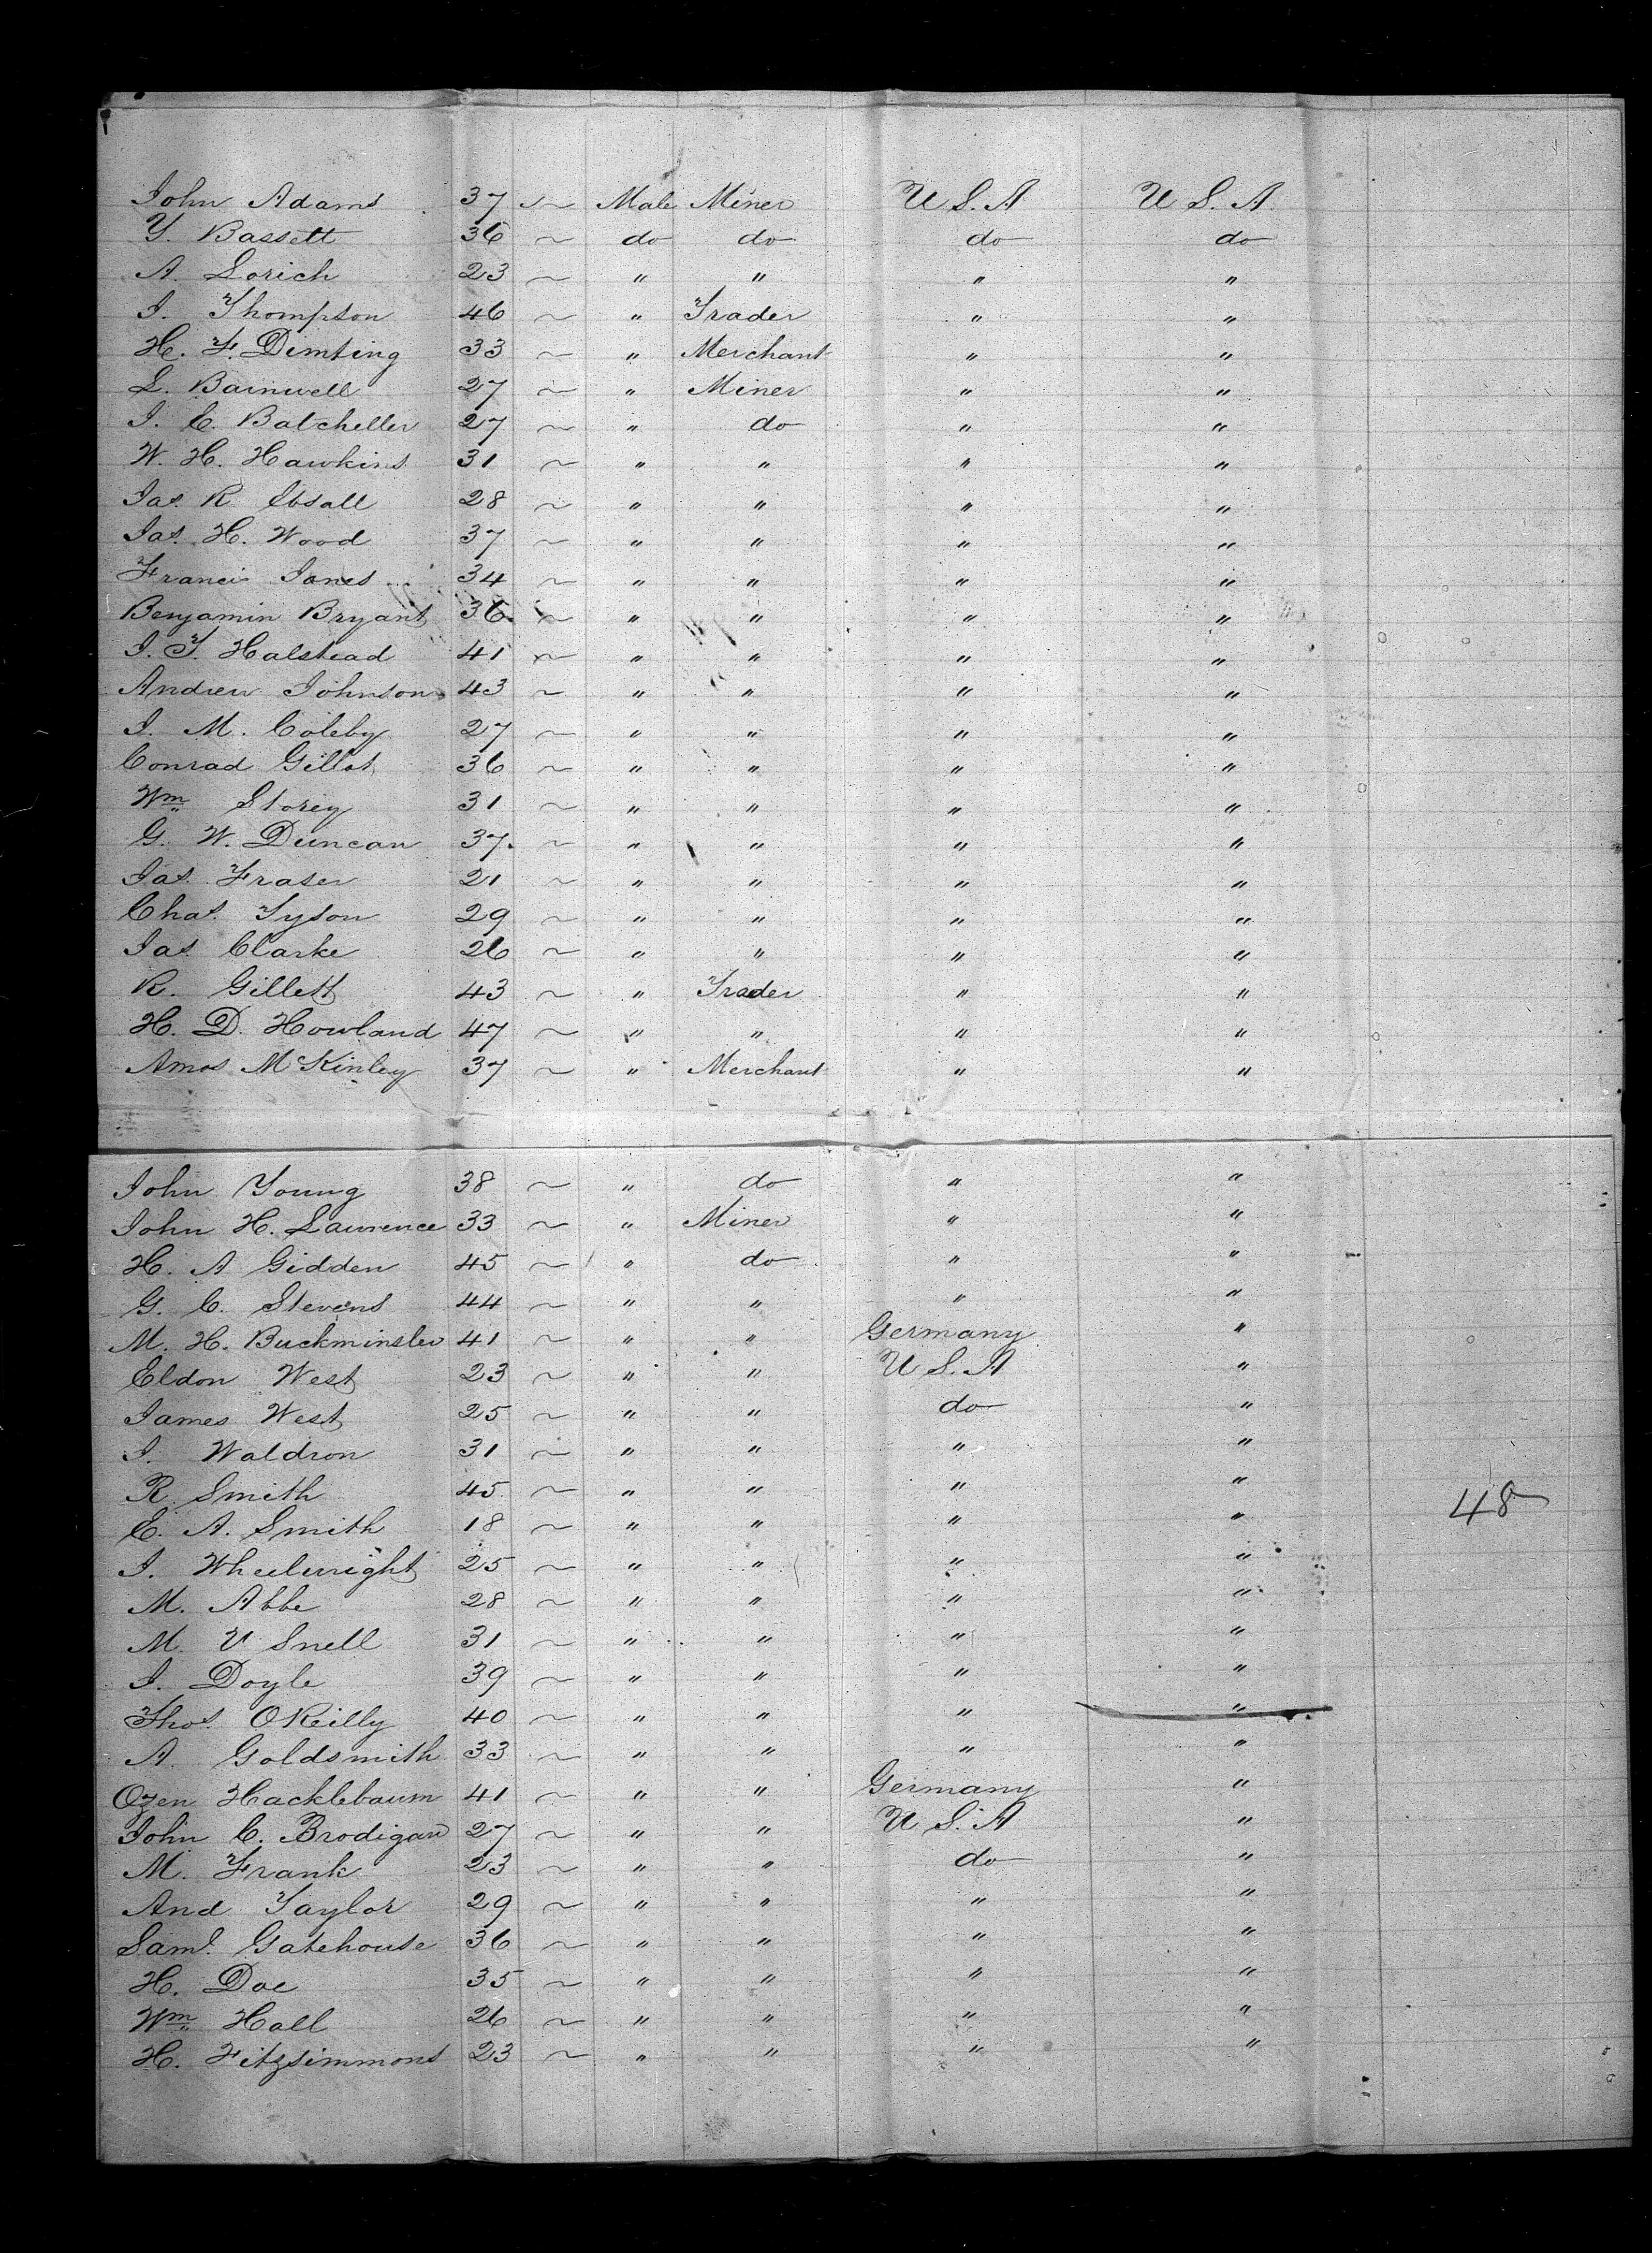 John Adams 37 ~ Male Miner U S. A U S. A.
Y. Bassett 36 ~ do do do do
A. Lorich 23 ~ " " " "
J. Thompson 46 ~ " Trader " "
H. F. Dimting 33 ~ " Merchant " "
L. Barnwell 27 ~ " Miner " "
J. C. Batcheller 27 ~ " do " "
W. H. Hawkins 31 ~ " " " "
Jas. R 28 ~ " " " "
Jas. H. Wood 37 ~ " " " "
Francis Jones 34 ~ " " " "
Benjamin Bryant 36 ~ " " " "
J. T. Halstead 41 ~ " " " "
Andrew Johnson 43 ~ " " " "
J. M. Coleby 27 ~ " " " "
Conrad Gillot 36 ~ " " " "
Wm Storey 31 ~ " " " "
G. W. Duncan 37. ~ " " " "
Jas. Fraser 21 ~ " " " "
Chas. Tyson 29 ~ " " " "
Jas Clarke 26 ~ " " " "
R. Gillett 43 ~ " Trader " "
H. D. Howland 47 ~ " " " "
Amos McKinley 37 ~ " Merchant " "
John Young 38 ~ " do " "
John H. Lawrence 33 ~ " Miner " "
H. A Gidden 45 ~ " do " "
G. C. Stevens 44 ~ " " " "
M. H. Buckminster 41 ~ " " Germany "
Eldon West 23 ~ " " U S. A "
James West 25 ~ " " do "
J. Waldron 31 ~ " " " "
R. Smith 45 ~ " " " "
E. A. Smith 18 ~ " " " " 48
J. Wheelwright 25 ~ " " " "
M. Abbe 28 ~ " " " "
M. V Snell 31 ~ " " " "
J. Doyle 39 ~ " " " "
Thos. OReilly 40 ~ " " " "
A. Goldsmith 33 ~ " " " "
Ozen Hacklebaum 41 ~ " " Germany "
John C. Brodigan 27 ~ " " U S. A "
M. Frank 23 ~ " " do "
And Taylor 29 ~ " " " "
Saml. Gatehouse 36 ~ " " " "
H. Doe 35 ~ " " " "
Wm Hall 26 ~ " " " "
H. Fitzsimmons 23 ~ " " " "